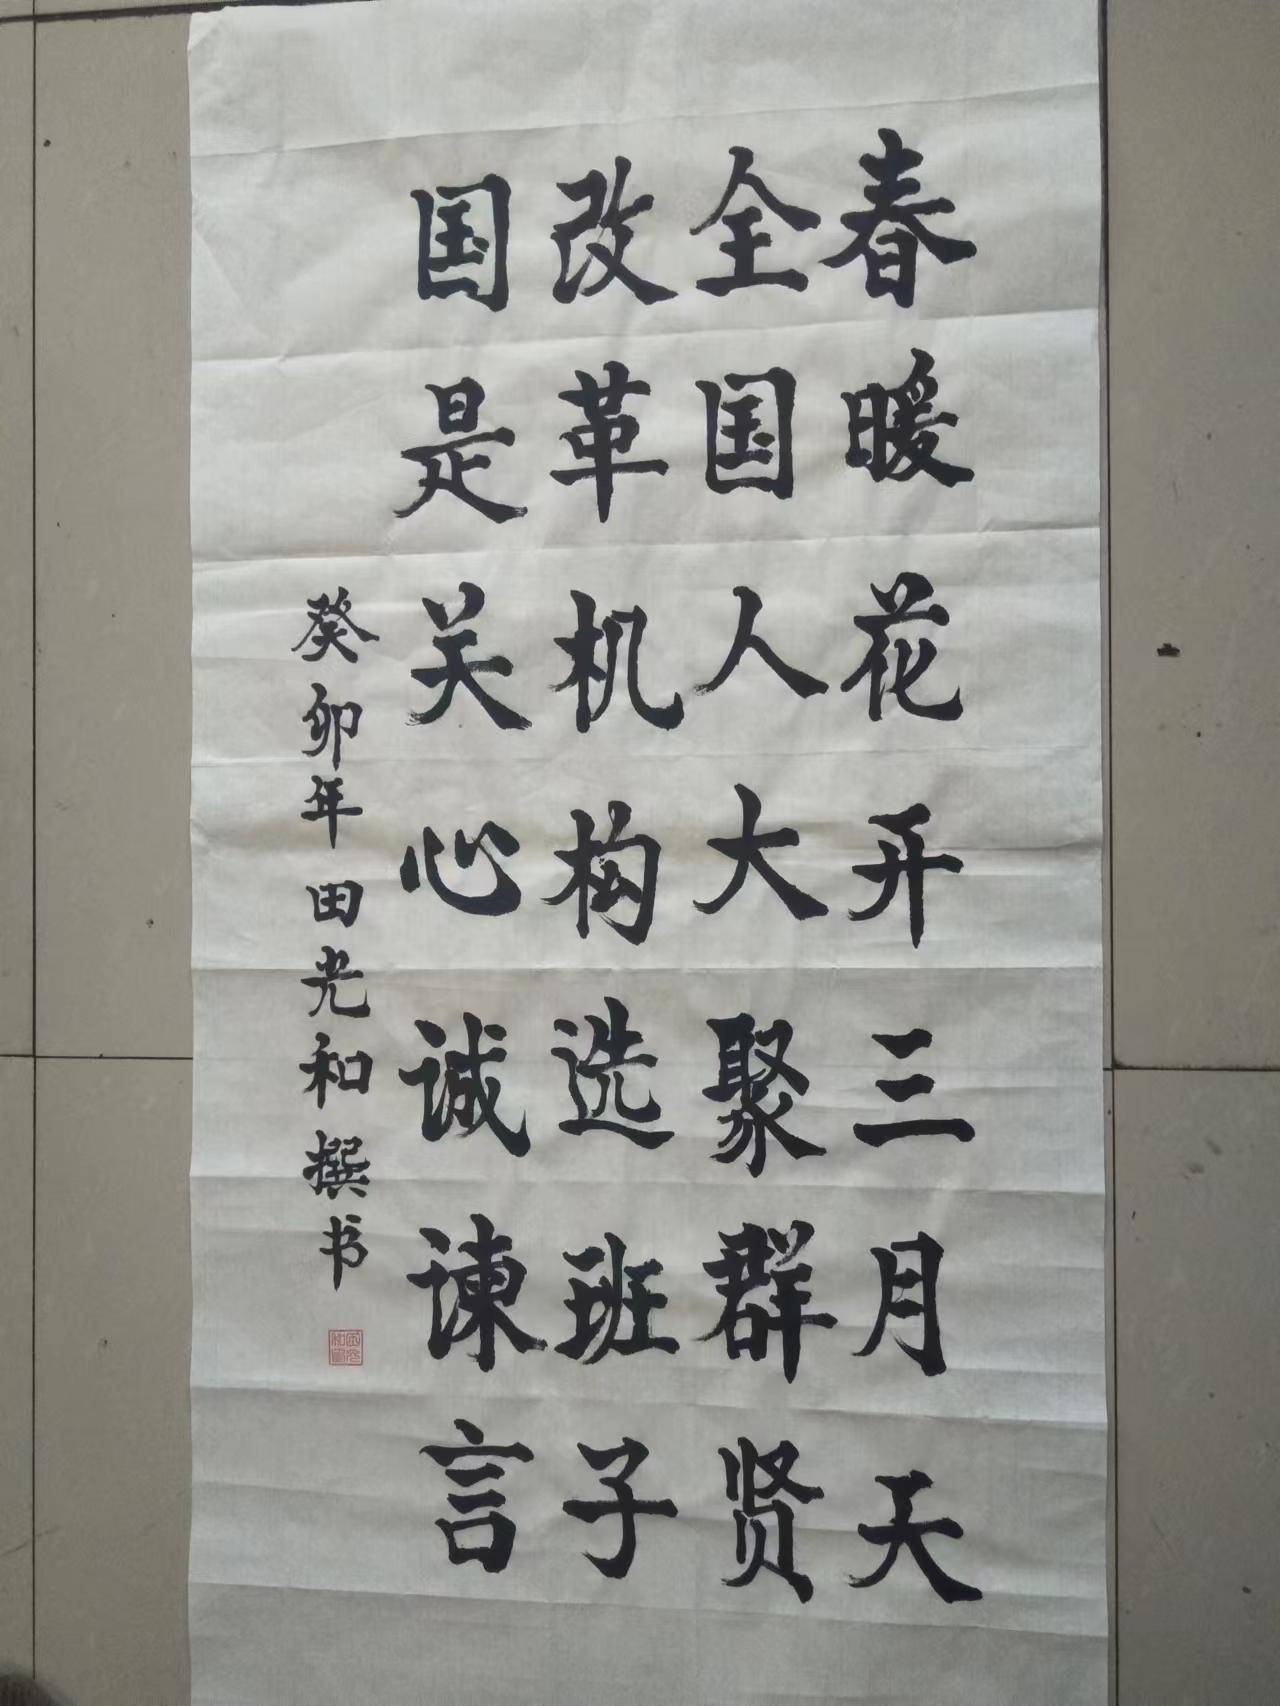 春暖花开三月天
全国人大聚群贤
改革机构选班子
国是关心诚谏言
癸卯年田光和撰书